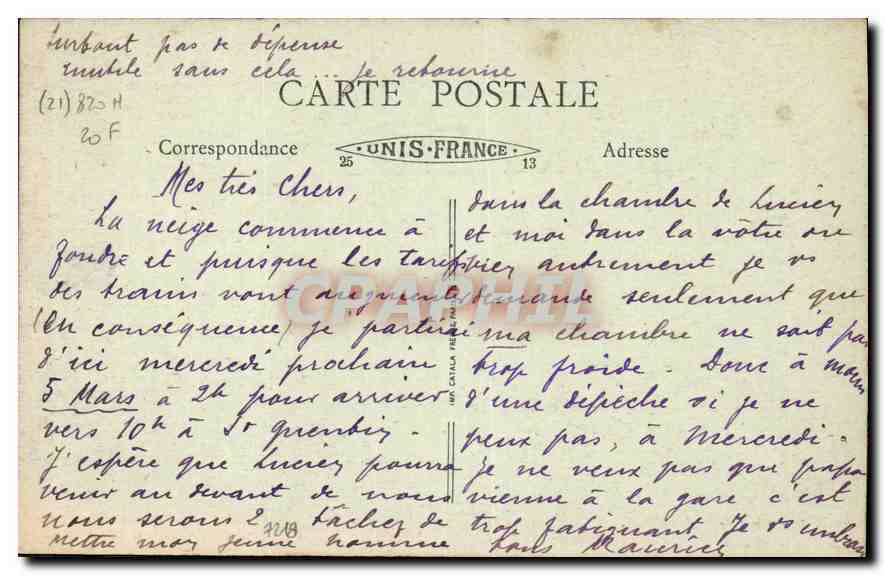 Surtout pas de dépense
inutile sans cela ... je retourne
(21) 820 H
20 F
CARTE POSTALE
Correspondance
UNIS-FRANCE
25 13
Adresse
Mes très Chers,
La neige commence à
fondre et puisque les tarifs
des trains vont augmenter
(en conséquence) je partirai
d'ici mercredi prochain
5 Mars à 2h pour arriver
vers 10h à St Quentin -
J'espère que Lucien pourra
venir au devant de nous
nous serons 2 tâchez de
mettre mon jeune homme
7213
IMP. CATALA FRÈRES, PARIS
dans la chambre de Lucien
et moi dans la vôtre ou
bien autrement je vs
demande seulement que
ma chambre ne soit pas
trop froide - Donc à moins
d'une dépèche si je ne
peux pas, à Mercredi -
Je ne veux pas que papa
vienne à la gare c'est
trop fatiguant Je vs embrasse
tous Maurice
CPAPHIL